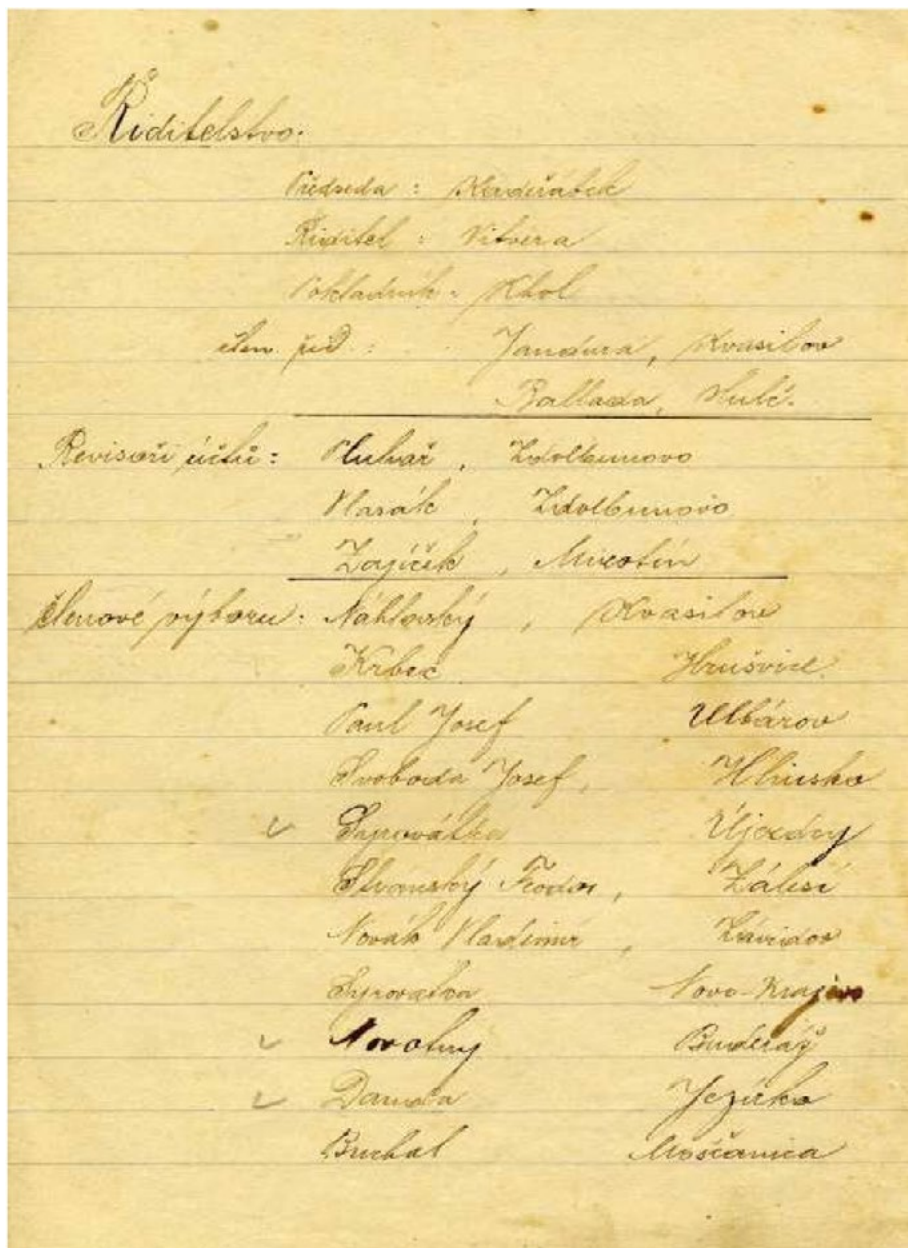 Řiditelstvo:
Předseda : Kendiřátek
Řiditel : Vitvera
Pokladník : Khol
člen. řed. : Jandura, Kvasilov
Ballada, Hulč.
Revisoři účtů : Huhař, Zdolbunovo
Vlasák, Zdolbunovo
Zajíček, Mirotín
členové výboru : Náhlovský, Kvasilov
Krbec Hrušvice
Paul Josef Ulbárov
Svoboda Josef, Hlinsko
Syrovátka Újezdny
Feodor, Zálesí
Novák Vladimír, Závidov
Syrovatva Novo-Krajevo
Novotný Buderáž
Damaša Jezírko
Buchal Moščanica